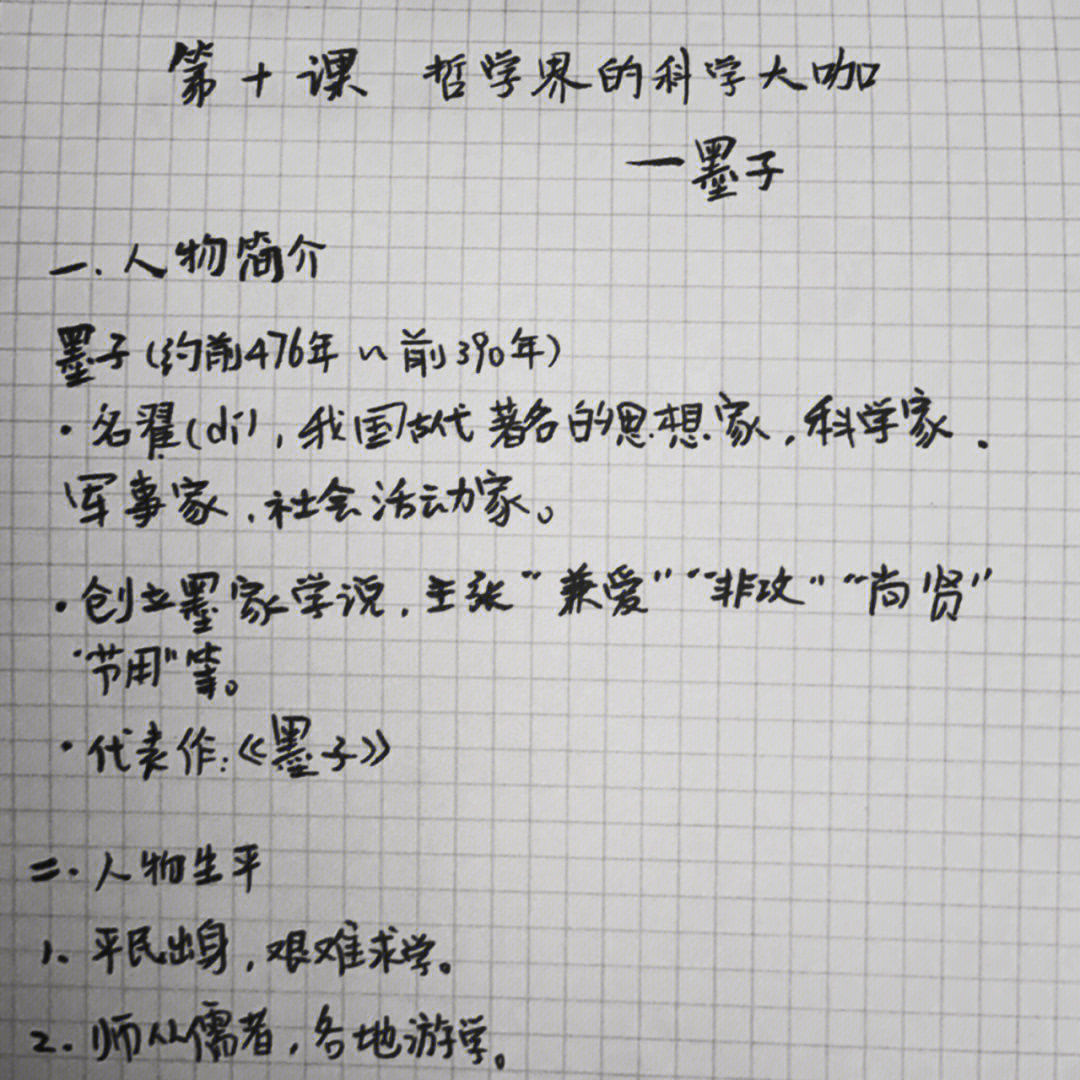 第十课 哲学界的科学大咖
一墨子
一.人物简介
墨子(约前476年~前390年)
·名翟(dí),我国古代著名的思想家,科学家.
军事家,社会活动家。
·创立墨家学说,主张“兼爱”“非攻”“尚贤”
“节用”等。
·代表作:《墨子》
二.人物生平
1、平民出身,艰难求学。
2.师从儒者,各地游学。